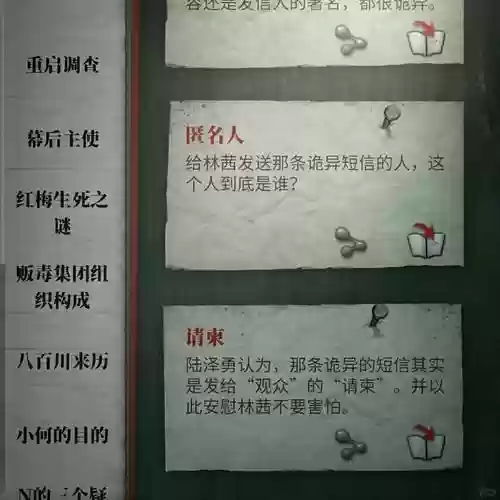 重启调查
幕后主使
红梅生死之
谜
贩毒集团组
织构成
八百川来历
小何的目的
N的三个疑
容还是发信人的署名，都很诡异。
匿名人
给林茜发送那条诡异短信的人，这
个人到底是谁？
请柬
陆泽勇认为，那条诡异的短信其实
是发给“观众”的“请柬”。并以
此安慰林茜不要害怕。